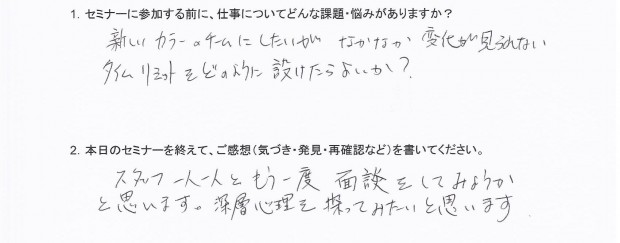 1. セミナーに参加する前に、仕事についてどんな課題・悩みがありますか？
新しいカラーのチームにしたいが なかなか 変化が見られない
タイムリミットをどのように設けたらよいか？
2. 本日のセミナーを終えて、ご感想（気づき・発見・再確認など）を書いてください。
スタッフ一人一人ともう一度 面談をしてみようか
と思います。深層心理を探ってみたいと思います